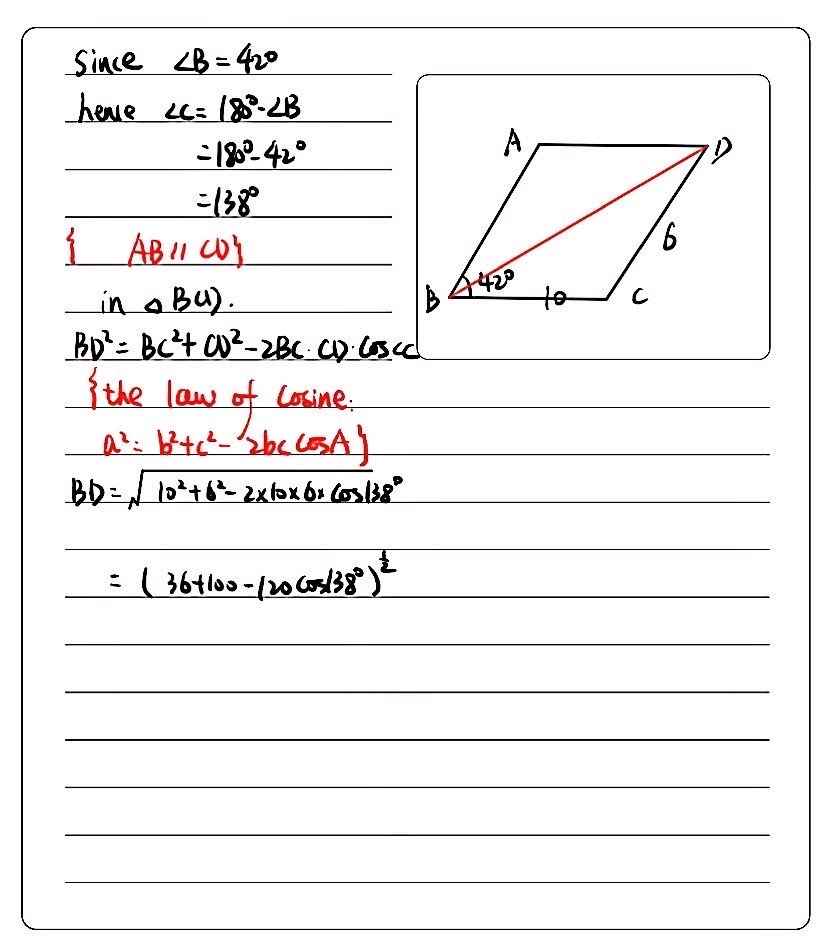 Since ∠B = 42°
hence ∠C = 180° - ∠B
= 180° - 42°
= 138°
{ AB // CD}
in △ BCD.
BD² = BC² + CD² - 2BC · CD · cos∠C
{the law of cosine:
a² = b² + c² - 2bc cosA}
BD = √10² + 6² - 2×10×6× cos138°
= (36+100 - 120 cos138°)^½
A
D
6
42°
B
10
C